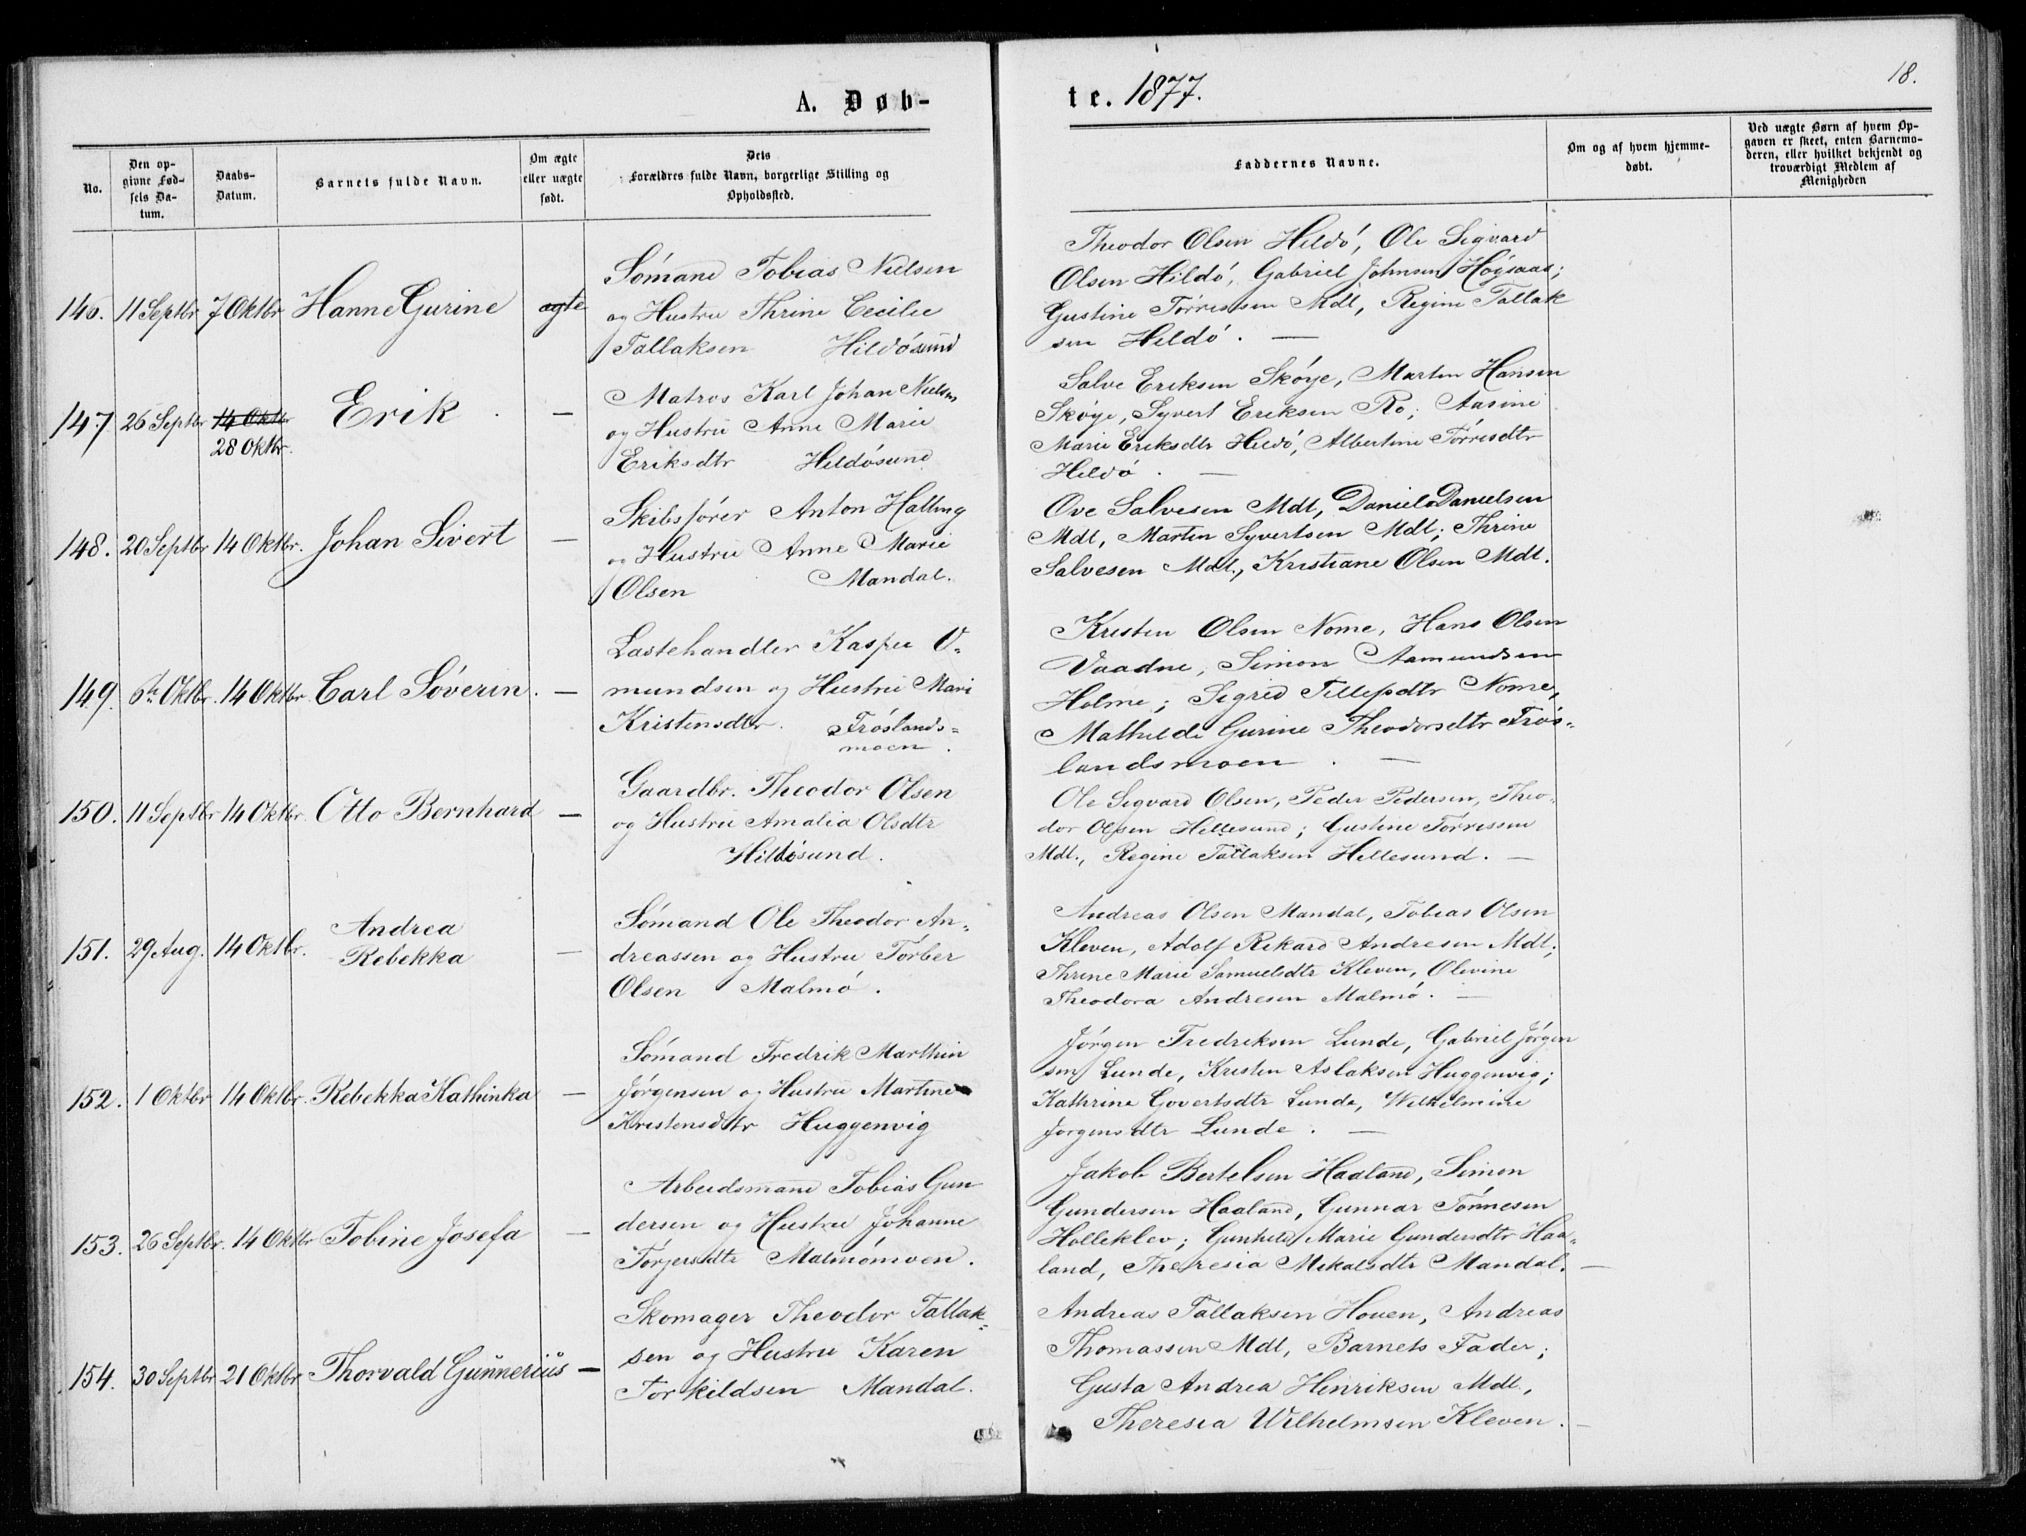 18.
A. Døb-
te. 1877.
No.
Den op-
givne Fød-
sels Da-
tum.
Daabs-
Datum.
Barnets fulde Navn.
Om ægte
eller uægte
født.
Dets
Forældres fulde Navn, borgerlige Stilling og
Opholdssted.
Faddernes Navne.
Om og af hvem hjemme-
døbt.
Ved uægte Børn af hvem Op-
gaven er skeet, enten Barnemo-
deren, eller hvilket bekjendt og
troværdigt Medlem af
Menigheden
146. 11 Septbr 7 Oktbr Hanne Gurine ægte
Sømand Tobias Nielsen
og Hustru Thrine Cecilie
Tallaksen Hildøsund
Theodor Olsen Hildö, Ole Sigvard
Olsen Hildö, Gabriel Johnsen Høgsaas;
Gustine Törressen Mdl, Regine Tallak
sen Hildö. —
147 26 Septbr 14 Oktbr
28 Oktbr.
Erik —
Matros Karl Johan Nielsen
og Hustru Anne Marie
Eriksdtr Hildøsund
Salve Eriksen Skøye, Martin Hansen
Skøye, Syvert Eriksen Ro; Aasine
Marie Eriksdtr Hildö, Albertine Törresdtr
Hildö. —
148. 20 Septbr 14 Oktbr. Johan Sivert —
Skibsfører Anton Halling
og Hustru Anne Marie
Olsen Mandal.
Ove Salvesen Mdl, Daniel Danielsen
Mdl, Martin Syvertsen Mdl; Thrine
Salvesen Mdl., Kristiane Olsen Mdl.
149. 6te Oktbr. 14 Oktbr Carl Søverin. —
Lastehandler Kasper O-
mundsen og Hustru Mari
Kristensdtr. Frøslands=
moen.
Kristen Olsen Nome, Hans Olsen
Vaadne, Simon Aamundsen
Holme; Sigrid Tellefsdtr Nome,
Mathilde Gurine Theodorsdtr Frøs-
landsmoen. —
150. 11 Septbr 14 Oktbr. Otto Bernhard —
Gaardbr. Theodor Olsen
og Hustru Amalia Olsdtr
Hildøsund.
Ole Sigvard Olsen, Peder Pedersen, Theo-
dor Olsen Hillesund; Gustine Törressen
Mdl., Regine Tallaksen Hillesund. —
151. 29 Aug. 14 Oktbr. Andrea
Rebekka —
Sømand Ole Theodor An-
dreassen og Hustru Torber
Olsen Malmö.
Andreas Olsen Mandal, Tobias Olsen
Kleven, Adolf Rikard Andresen Mdl;
Thrine Marie Samuelsdtr Kleven, Olevine
Theodora Andresen Malmö. —
152. 1 Oktbr 14 Oktbr. Rebekka Kathinka —
Sømand Fredrik Marthin
Jörgensen og Hustru Martine
Kristensdtr Huggenvig
Jörgen Fredriksen Lunde, Gabriel Jörgen
sen Lunde, Kristen Aslaksen Huggenvig;
Kathrine Govertsdtr Lunde, Wilhelmine
Jorgensdtr Lunde. —
153. 26 Septbr. 14 Oktbr Tobine Josefa —
Arbeidsmand Tobias Gun
dersen og Hustru Johanne
Törjersdtr Malmömoen.
Jakob Bertelsen Haaland, Simon
Gundersen Haaland, Gunnar Tönnesen
Holleklev; Gunhild Marie Gundersdtr Haa-
land, Theresia Mikalsdtr Mandal. —
154. 30 Septbr 21 Oktbr Thorvald Gunnerius —
Skomager Theodor Tallak-
sen og Hustru Karen
Torkildsen Mandal.
Andreas Tallaksen Hoven, Andreas
Thomassen Mdl, Barnets Fader;
Gusta Andrea Henriksen Mdl.,
Theresia Wilhelmsen Kleven. —